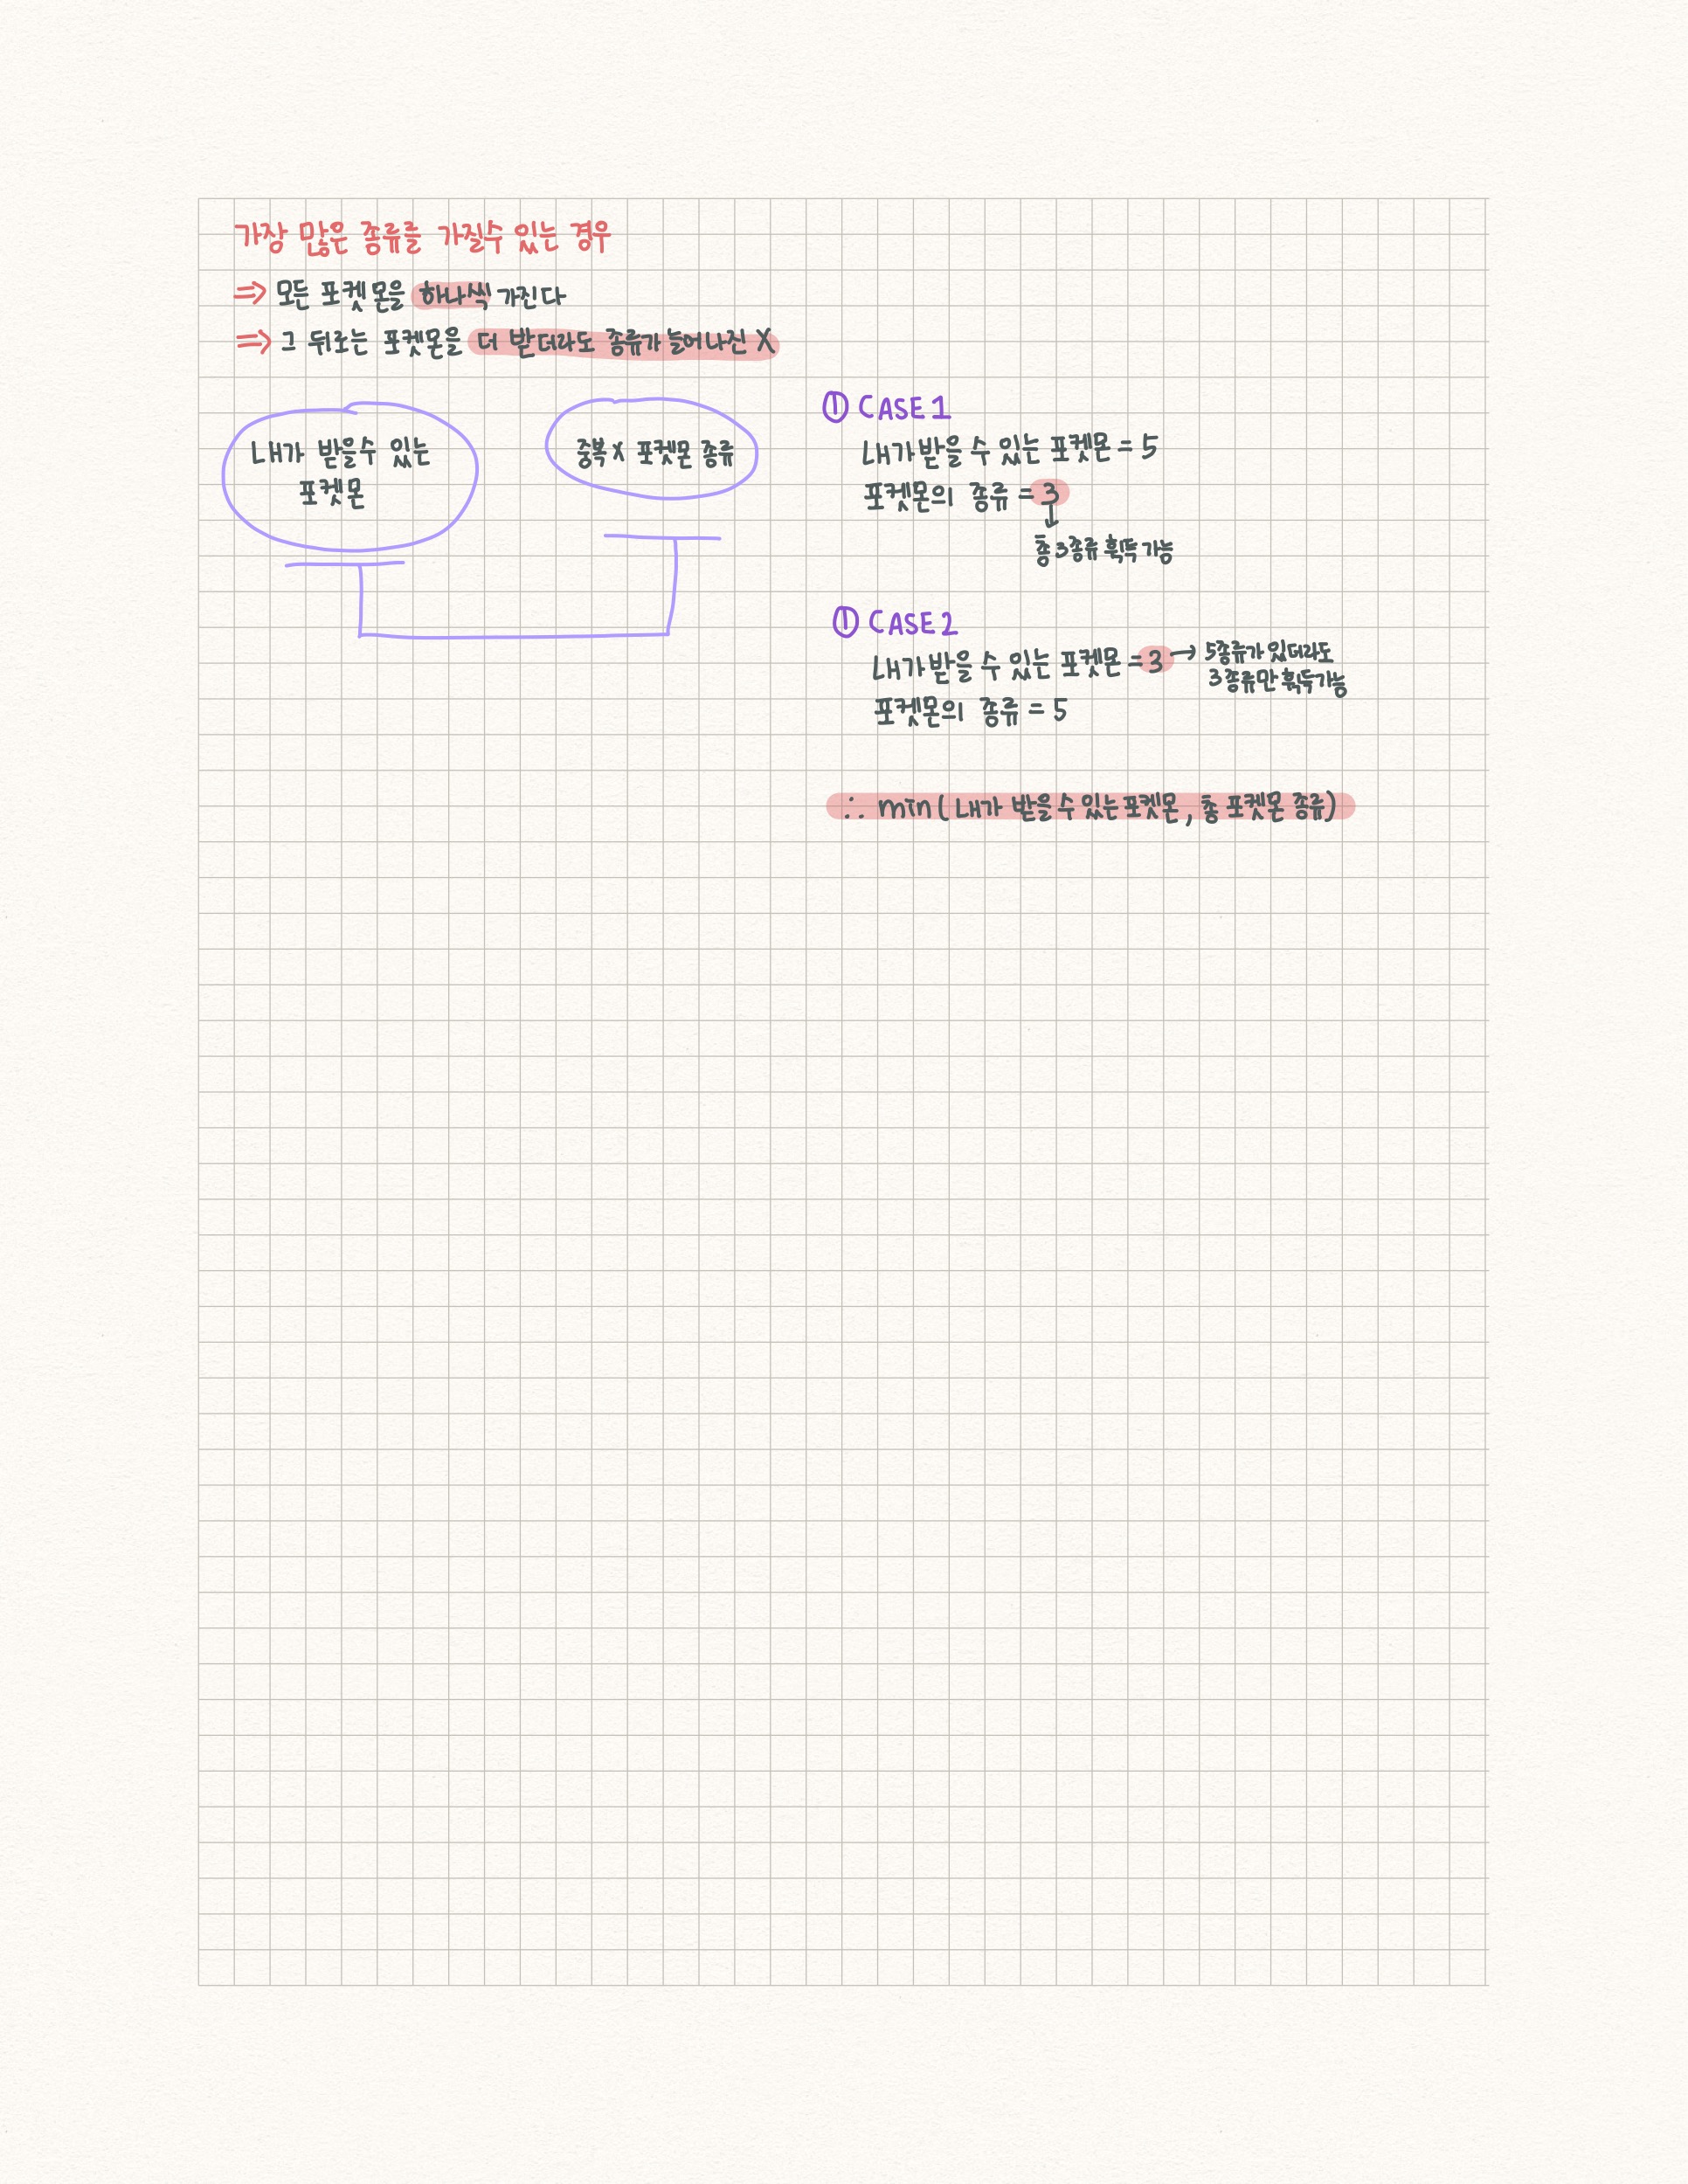 가장 많은 종류를 가질수 있는 경우
⇒ 모든 포켓몬을 하나씩 가진다
⇒ 그 뒤로는 포켓몬을 더 받더라도 종류가 늘어나진 X
내가 받을수 있는
포켓몬
중복X 포켓몬 종류
① CASE1
내가 받을 수 있는 포켓몬 = 5
포켓몬의 종류 = 3
↓
총 3종류 획득 가능
① CASE2
내가 받을 수 있는 포켓몬 = 3 → 5종류가 있더라도
3종류만 획득가능
포켓몬의 종류 = 5
∴ min ( 내가 받을 수 있는 포켓몬, 총 포켓몬 종류)